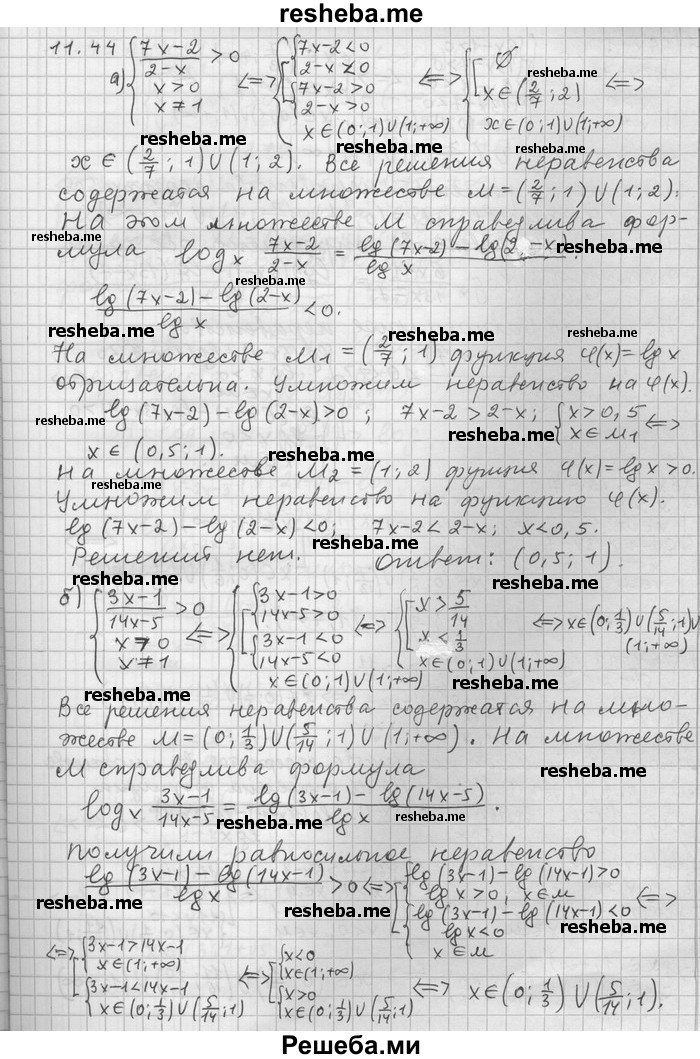 resheba.me
11.44
а) { (7x-2)/(2-x) > 0 ; x > 0 ; x ≠ 1 <=> { [ { 7x-2<0 ; 2-x<0 ; { 7x-2>0 ; 2-x>0 ; x∈(0;1)∪(1;+∞) <=> { [ ∅ ; x∈(2/7;2) ; x∈(0;1)∪(1;+∞) <=>
x ∈ (2/7;1)∪(1;2). Все решения неравенства
содержатся на множестве M=(2/7;1)∪(1;2).
На этом множестве M справедлива фор-
мула log_x (7x-2)/(2-x) = (lg(7x-2)-lg(2-x))/(lg x).
(lg(7x-2)-lg(2-x))/(lg x) <0.
На множестве M₁=(2/7;1) функция φ(x)=lg x
отрицательна. Умножим неравенство на φ(x).
lg(7x-2)-lg(2-x)>0; 7x-2>2-x; { x>0,5 ; x∈M₁ <=>
x∈(0,5;1).
На множестве M₂=(1;2) функция φ(x)=lg x>0.
Умножим неравенство на функцию φ(x).
lg(7x-2)-lg(2-x)<0; 7x-2<2-x; x<0,5.
Решений нет. Ответ: (0,5;1).
б) { (3x-1)/(14x-5) > 0 ; x > 0 ; x ≠ 1 <=> { [ { 3x-1>0 ; 14x-5>0 ; { 3x-1<0 ; 14x-5<0 ; x∈(0;1)∪(1;+∞) <=> { [ x>5/14 ; x<1/3 ; x∈(0;1)∪(1;+∞) <=> x∈(0;1/3)∪(5/14;1)∪
(1;+∞)
Все решения неравенства содержатся на мно-
жестве M=(0;1/3)∪(5/14;1)∪(1;+∞). На множестве
M справедлива формула
log_x (3x-1)/(14x-5) = (lg(3x-1)-lg(14x-5))/(lg x).
Получили равносильное неравенство
(lg(3x-1)-lg(14x-1))/(lg x) >0 <=> [ { lg(3x-1)-lg(14x-1)>0 ; lg x>0, x∈M ; { lg(3x-1)-lg(14x-1)<0 ; lg x<0 ; x∈M <=>
<=> [ { 3x-1>14x-1 ; x∈(1;+∞) ; { 3x-1<14x-1 ; x∈(0;1/3)∪(5/14;1) <=> [ { x<0 ; x∈(1;+∞) ; { x>0 ; x∈(0;1/3)∪(5/14;1) <=> x∈(0;1/3)∪(5/14;1).
Решеба.ми